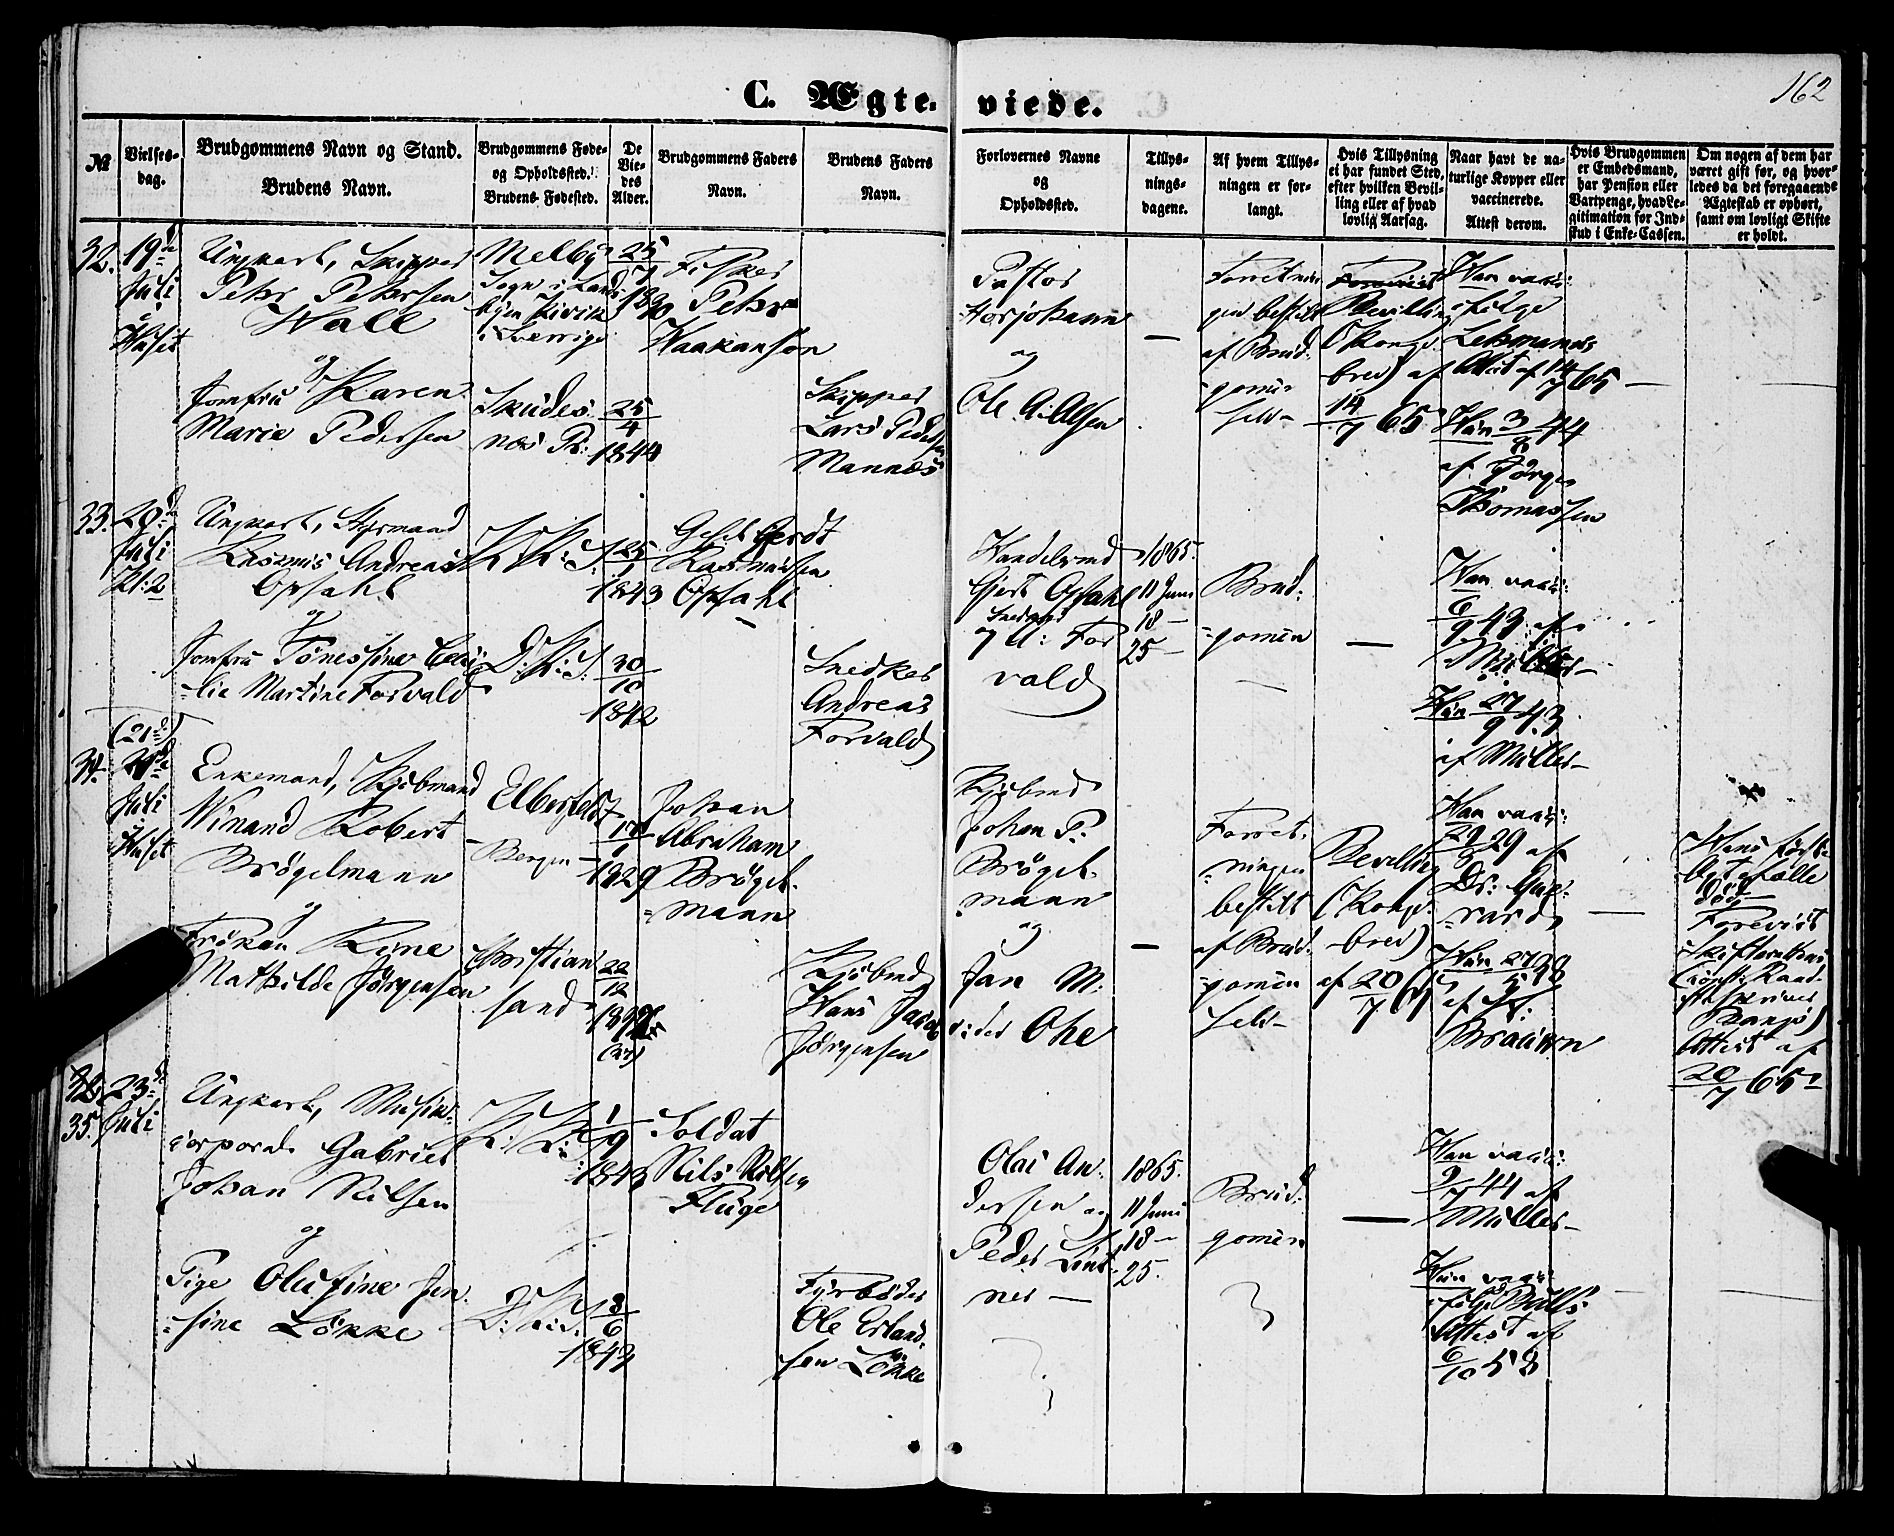 162
C. Ægte-viede.
№
Vielses-
dag.
Brudgommens Navn og Stand.
Brudens Navn.
Brudgommens Føde-
og Opholdssted.
Brudens Fødested.
De
Vie-
des
Alder.
Brudgommens Faders
Navn.
Brudens Faders
Navn.
Forlovernes Navne
og
Opholdssted.
Tillys-
nings-
dagene.
Af hvem Tillys-
ningen er for-
langt.
Hvis Tillysning
ei har fundet Sted,
efter hvilken Bevil-
ling eller af hvad
lovlig Aarsag.
Naar havt de na-
turlige Kopper eller
vaccinerede.
Attest derom.
Hvis Brudgommen
er Embedsmand,
har Pension eller
Vartpenge, hvad Le-
gitimation for Ind-
skud i Enke-Cassen.
Om nogen af dem har
været gift før, og hvor-
ledes da det foregaaende
Ægteskab er ophørt,
samt om lovligt Skifte
er holdt.
32.
19de
Juli
Huset
Ungkarl, Skipper
Pehr Pehrsen
Wall
og
Jomfru Karen
Marie Pedersen
Melby
Sogn i Lands-
byen Kivik
i Sverrige
Skudes-
næs P:
25
7
1830
25
4
1844
Fisker
Pehr
Haakanson
Skipper
Lars Peder
Mannes
Pastor
Horjohann
og
Ole A. Olsen
—
Forretnin
gen bestilt
af Brud-
gomm
selv
Bevilling
(Konge-
brev) af
14/7 65
Han vacc:
ifølge
Lehmanns
Attest af 14/7 65
Hun 3/8 44
af Jørgen
Thomassen
33.
20de
Juli
Kl: 2
Ungkarl, Styrmand
Rasmus Andreas
Opsahl
og
Jomfru Tønessine Ceci-
lie Martine Forvald
K: K: S:
D: K: S:
25
1
1843
30
10
1842
Gerdt
Rasmussen
Opsahl
Snedker
Andreas
Forvald
Handelsmd
Gjert Opsahl
Snedker
A: For
vald
1865.
11 Juni
18 —
25 —
Brud-
gommen
—
Han vacc:
6/9 43 af
Møller
Hun 27/9 43
af Møller
(21de)
34.
Juli
Huset
Enkemand, Kjøbmand
Winand Robert
Brögelmann
og
Frøken Rine
Mathilde Jörgensen
Elberfeldt
Bergen
Christian
sand
17
1
1829
22
12
Johan
Abraham
Brögel-
mann
Kjøbmd
Hans Jacob
Jörgensen
Kjøbmd
Johan P.
Brögel-
mann
og
Jan M.
Ohe
—
Forret-
ningen
bestilt
af Brud-
gommen
selv
Bevilling
(Konge-
brev)
af 20/7 65
Han vacc:
29 af
Dr:
Hun
af
Braüwn
—
Hans første
Ægtefælle
död
Forevist
Skifterettens
Attest af
20/7 65
35.
23de
Juli
Ungkarl, Musik-
corporal Gabriel
Johan Nilsen
og
Pige Olufine Jen-
sine Løkke
K: K:
D: K: S:
1
9
1843
8
6
1843
Soldat
Nils Nilsen
Fluge
Fyrbøder
Ole Erland-
sen Løkke
Olai An-
dersen og
Peder Lint-
ner —
1865.
11 Juni
18 —
25 —
Brud-
gommen
—
Han vacc:
9/7 44 af
Møller
Hun vacc:
ifølge Bulls
Attest af
6/10 58